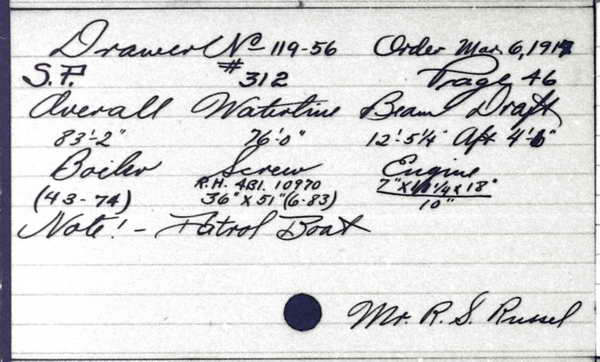 Drawer No 119-56 Order Mar. 6, 1917
S.P. #312 Page 46
Overall Waterline Beam Draft
83'-2" 76'-0" 12'-5¼" Aft 4'-6"
Boiler Screw Engine
(43-74) R.H. 4Bl. 10970 7"x11¼x18"
36"x51"(6-83) 10"
Note! - Patrol Boat
Mr. R. S. Russel